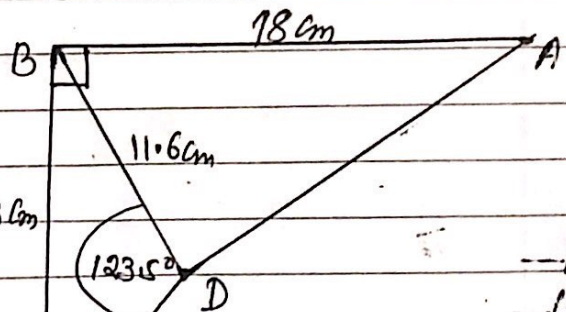 18cm
B
A
11.6cm
cm
123.5°
D